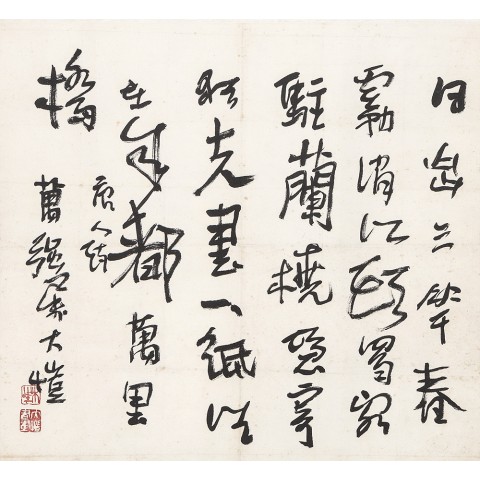 日出三竿春
霧消江頭蜀客
駐蘭橈憑寄
狂夫書一紙住
在成都萬里
橋
唐人詩
大愷